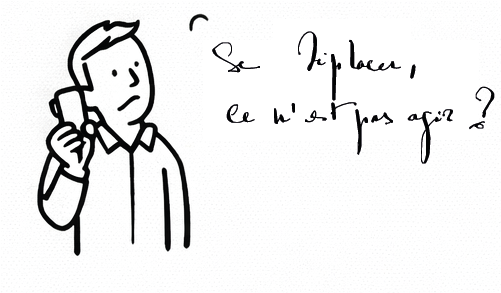 Se déplacer,
ce n'est pas agir ?